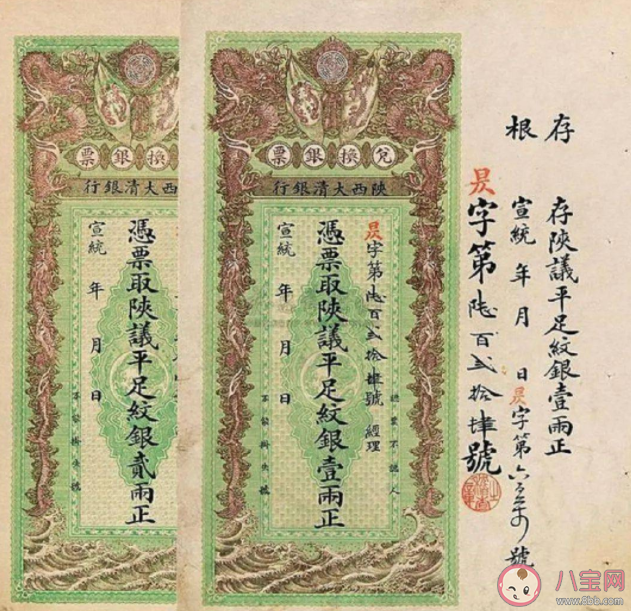 存根
存陝議平足紋銀壹兩正
宣統 年 月 日 昃字第
號
昃字第陸百弍拾肆號
兌換銀票
陝西大清銀行
昃字第陸百弍拾肆號 經理
憑票取陝議平足紋銀壹兩正
宣統 年 月 日
換銀票
西大清銀行
憑票取陝議平足紋銀貳兩正
宣統 年 月 日
八宝网
www.8bb.com